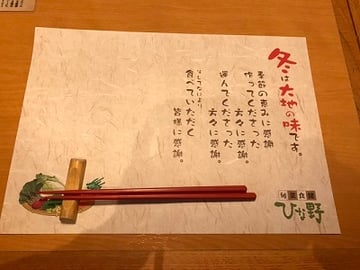 冬は大地の味です。
季節の恵みに感謝
作ってくださった
方々に感謝。
運んでくださった
方々に感謝。
そしてなにより
食べていただく
皆様に感謝。
旬菜食健
ひな野